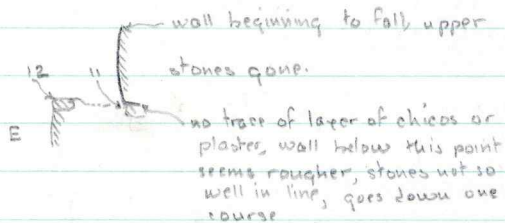 wall beginning to fall, upper
stones gone.
12 11
E
no trace of layer of chicos or
plaster, wall below this point
seems rougher, stones not so
well in line, goes down one
course